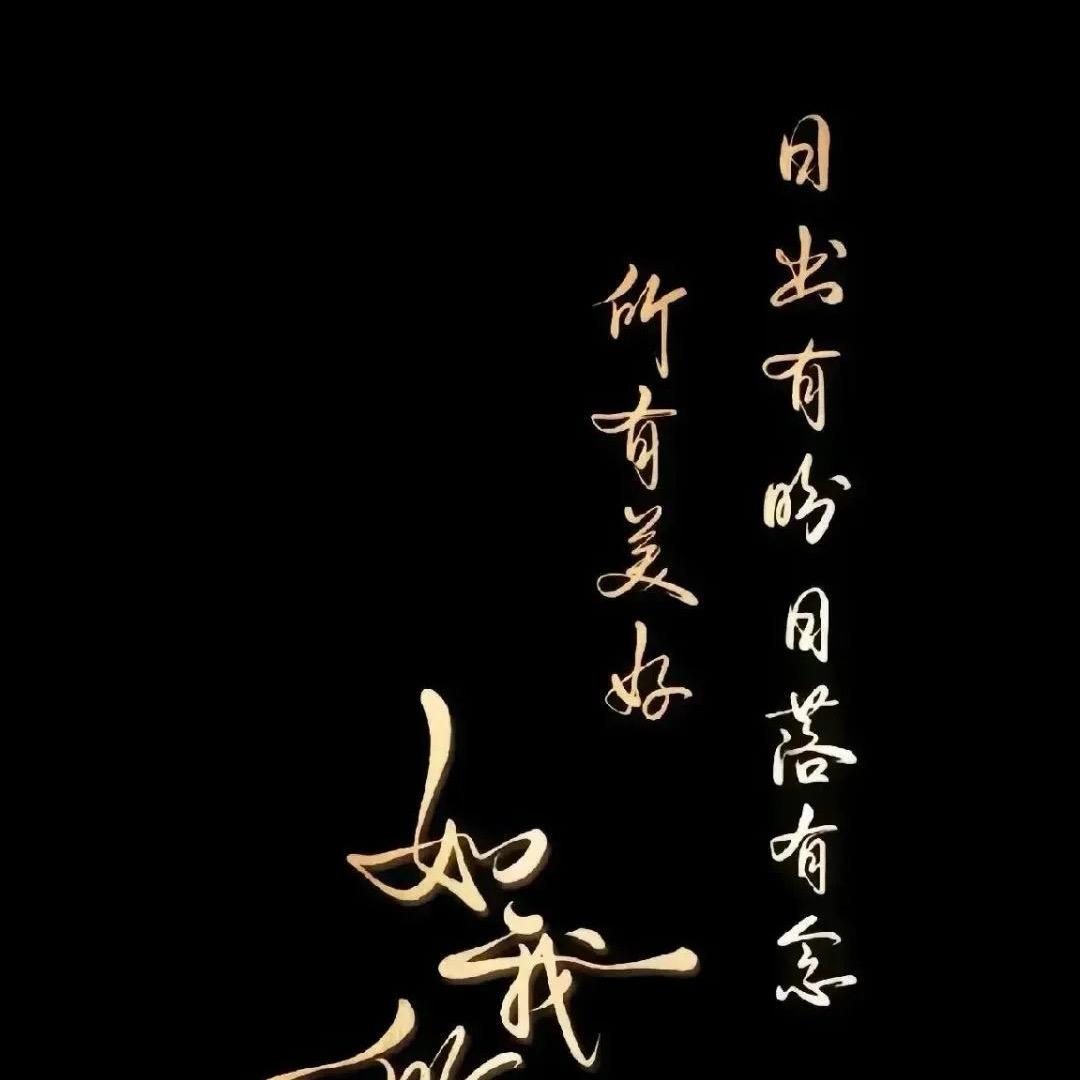 日出有盼日落有念
所有美好
如我